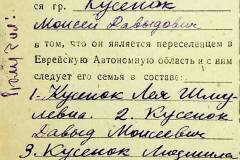 ся гр. Кусенок
Моисей Давыдович
в том, что он является переселенцем в
Еврейскую Автономную область и с ним
следует его семья в составе:
1. Кусенок Лея Шму-
левна. 2 Кусенок
Давыд Моисеевич
3. Кусенок Людмила